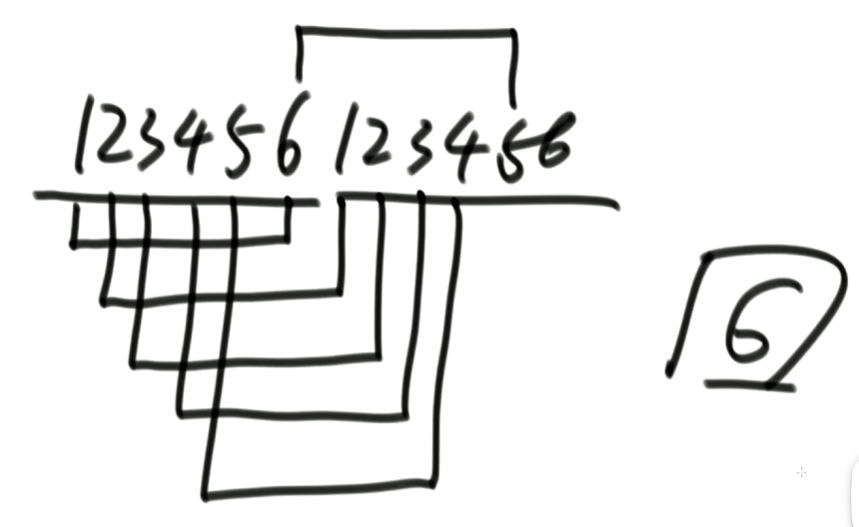 123456 123456
6